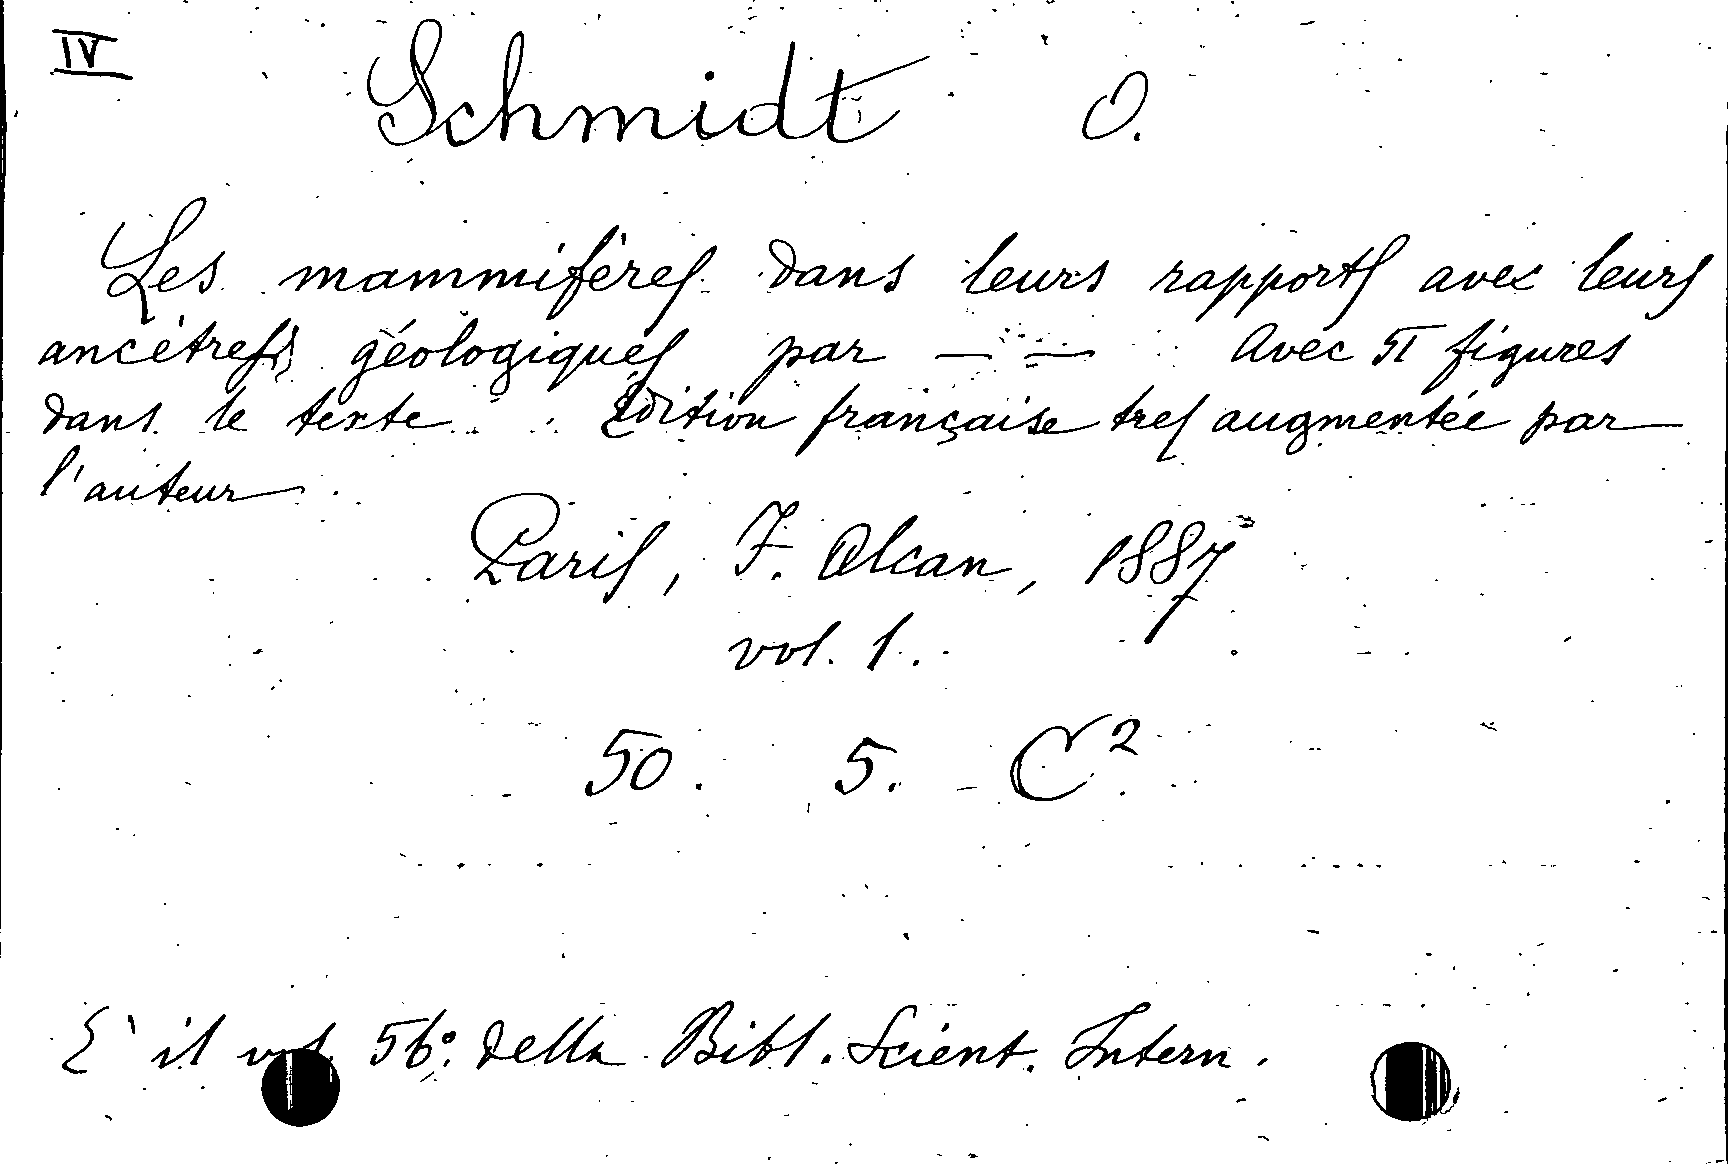 IV
Schmidt O.
Les mammifères dans leurs rapports avec leurs
ancêtres géologiques par — — Avec 51 figures
dans le texte. Édition française tres augmentée par
l'auteur
Paris, F. Alcan, 1887
vol. 1.
50. 5. C²
E' il vol. 56° della Bibl. Scient. Intern.